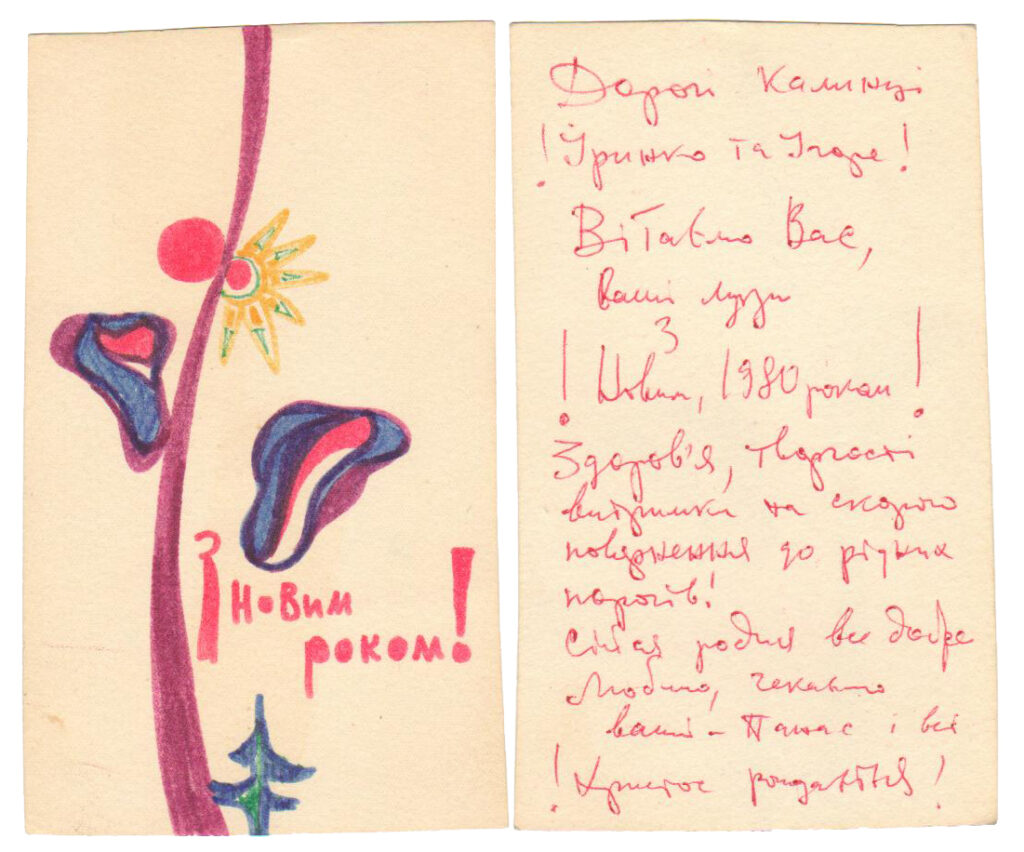 З Новим
роком!
Дорогі Калинці
! Іринко та Ігоре!
Вітаємо Вас,
Ваші друзі
З
! Новим, 1980 роком!
Здоров'я, творчості
витримки та скорого
повернення до рідних
порогів!
родині все добре
Любимо, чекаємо
ваші - Панас і всі
! Христос рождається!